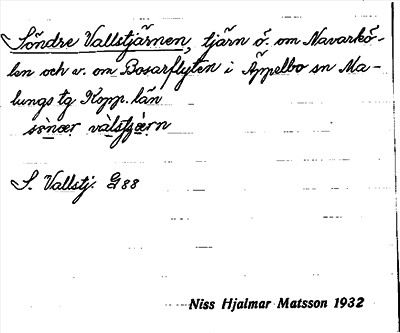 Söndre Vallstjärnen, tjärn ö. om Navarkö-
len och v. om Bosarflyten i Äppelbo sn Ma-
lungs tg Kopp. län
S. Vallstj. G 88
Niss Hjalmar Matsson 1932